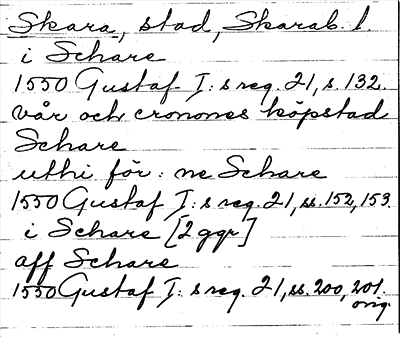 Skara, stad, Skarab. l.
i Schare
1550 Gustaf I: s reg. 21, s. 132.
vår och cronones köpstad
Schare
uthi för: ne Schare
1550 Gustaf I: s reg. 21, ss. 152, 153.
i Schare [2 ggr]
aff Schare
1550 Gustaf I: s reg. 21, ss. 200, 201.
orig.